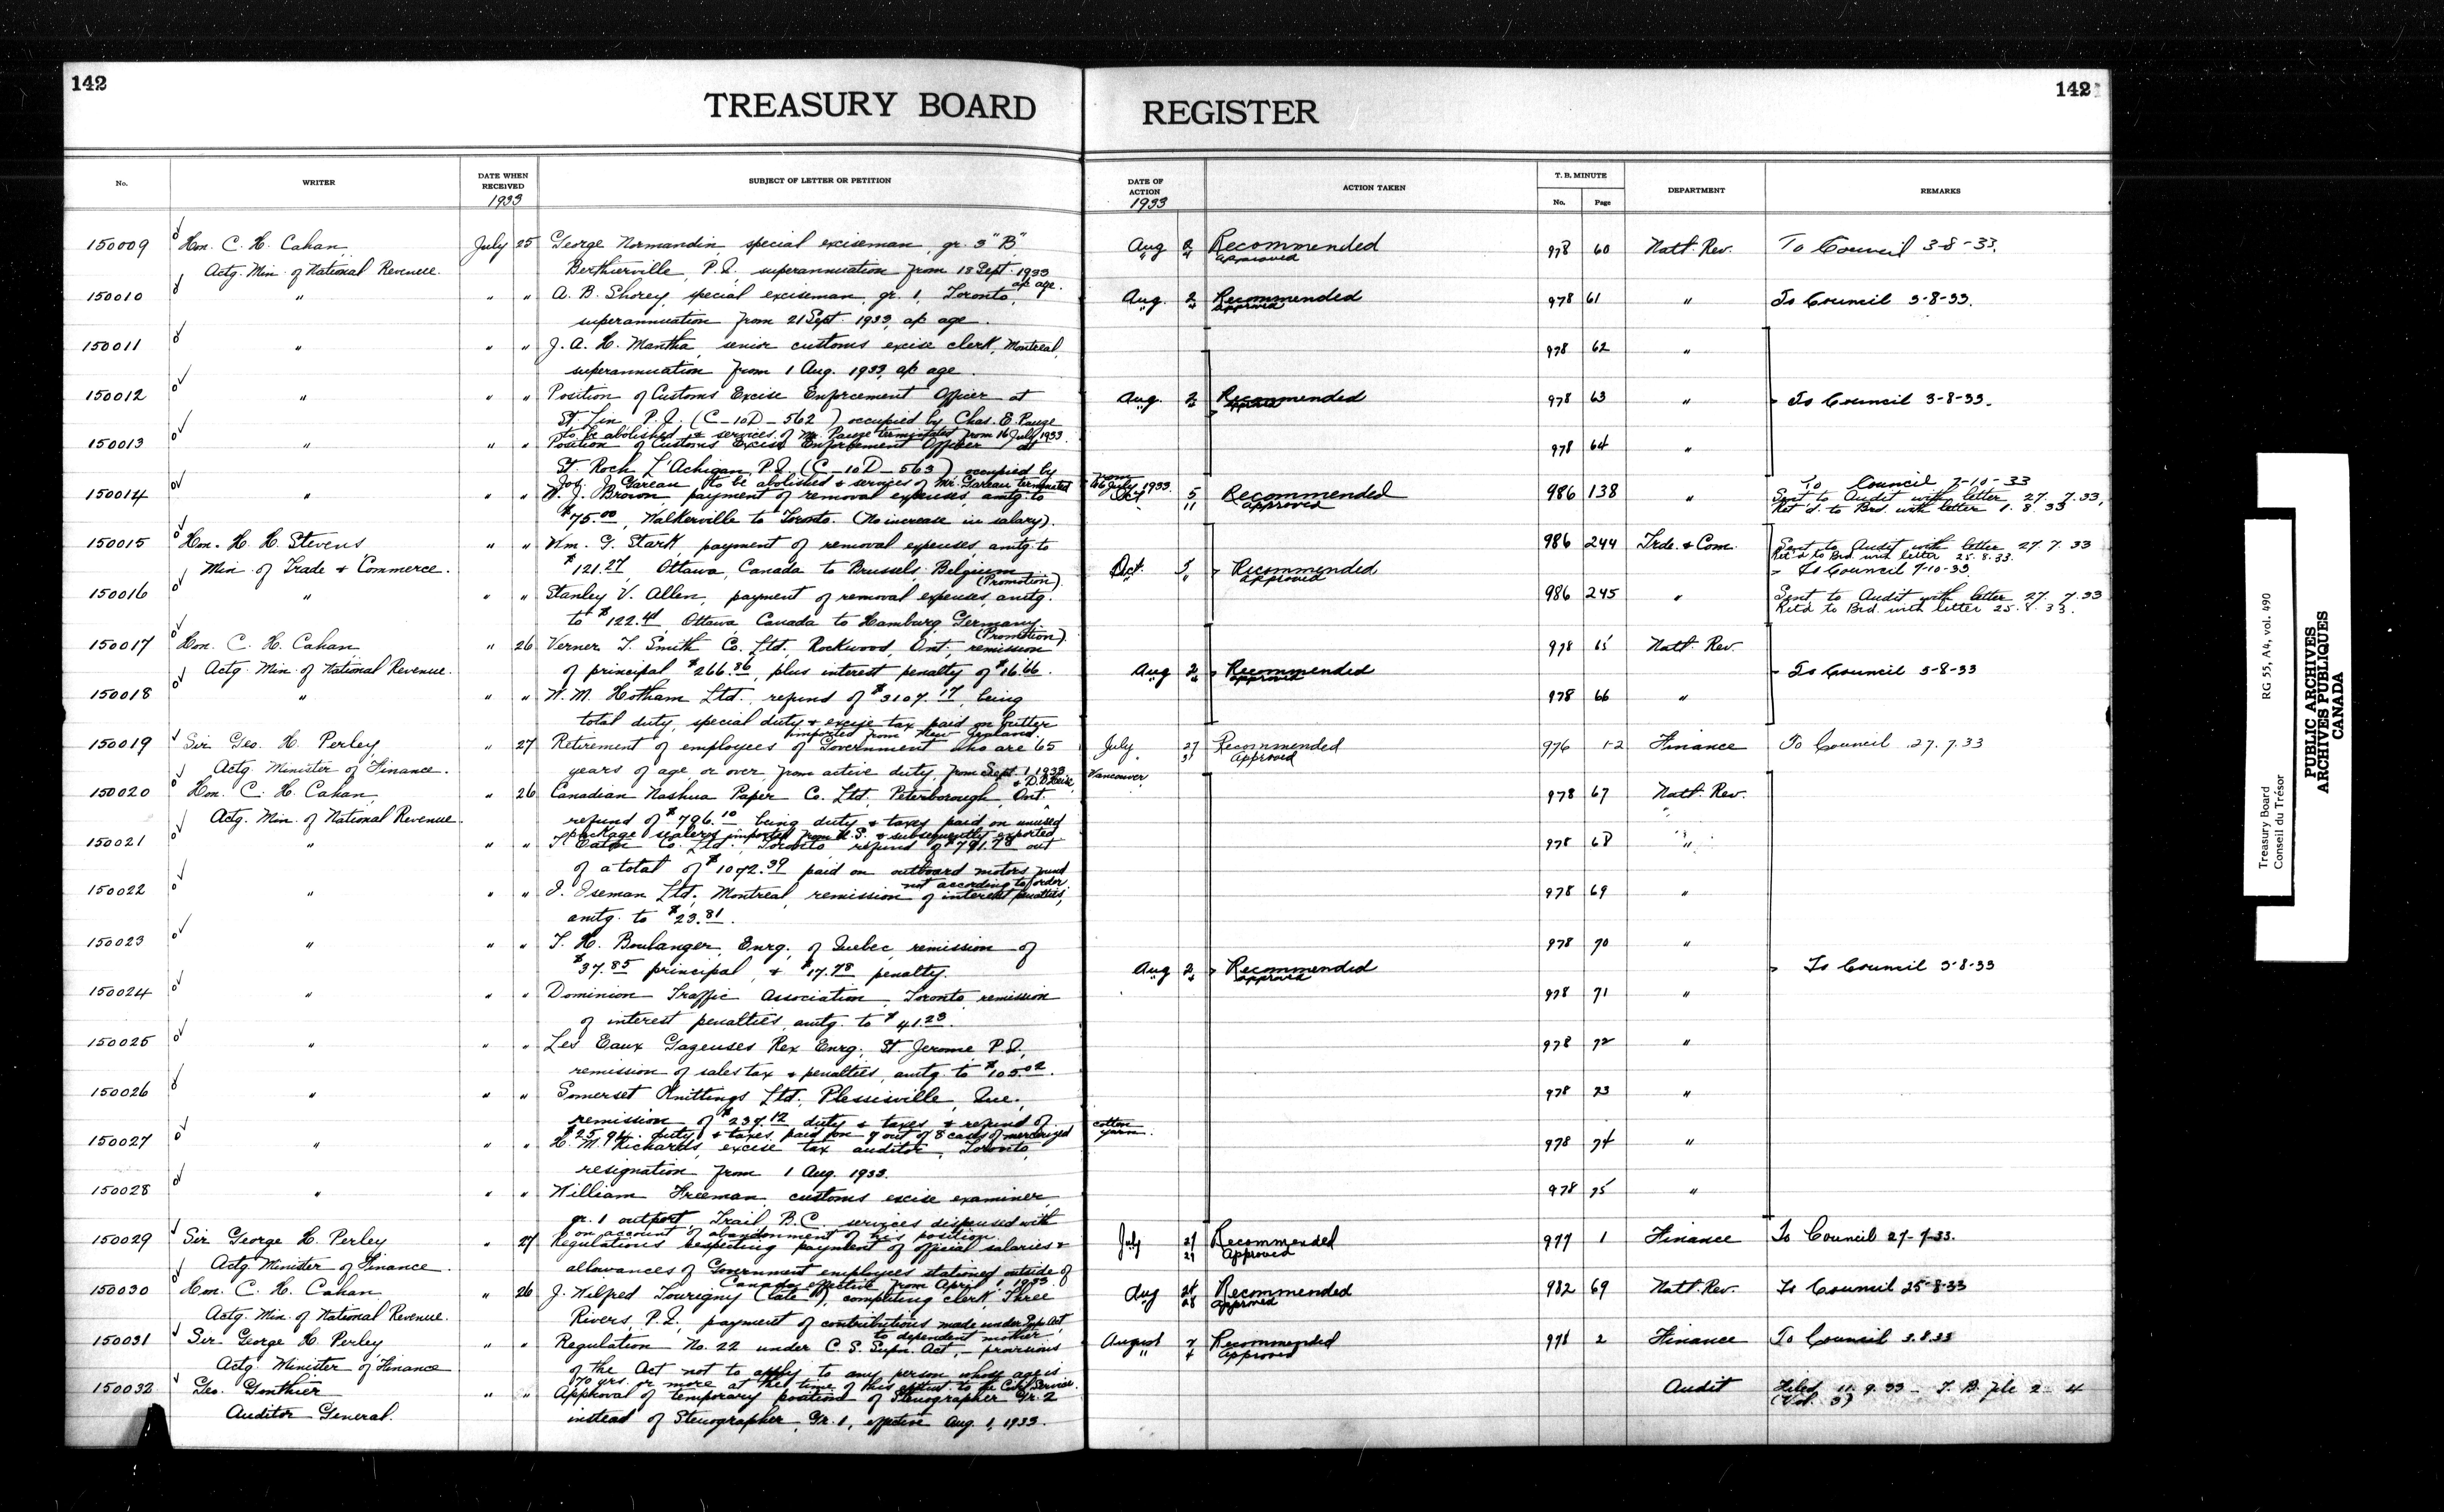 142
142
TREASURY BOARD REGISTER
No.
WRITER
DATE WHEN RECEIVED
1933
SUBJECT OF LETTER OR PETITION
DATE OF ACTION
1933
ACTION TAKEN
T. B. MINUTE
No.
Page
DEPARTMENT
REMARKS
150009 Hon. C. H. Cahan, July 25 George Normandin, special exciseman, gr. 3 "B", Aug 2 Recommended 978 60 Natl. Rev. To Council 3-8-33.
Actg. Min. of National Revenue. Berthierville, P.Q. superannuation from 18 Sept. 1933 " 4 approved
ap age.
150010 " " " A. B. Shorey, special exciseman, gr. 1, Toronto, Aug. 2 Recommended 978 61 " To Council 3-8-33.
superannuation from 21 Sept. 1933, ap age. " 4 approved
150011 " " " J. A. H. Mantha, senior customs excise clerk, Montreal, 978 62 "
superannuation from 1 Aug. 1933, ap age.
150012 " " " Position of Customs Excise Enforcement Officer at Aug. 2 Recommended 978 63 " To Council 3-8-33.
St. Lin, P.Q. (C-10D-562) occupied by Chas. E. Pauze approved
to be abolished & services of Mr. Pauze terminated from 16 July 1933.
150013 " " " Position of Customs Excise Enforcement Officer at 978 64 "
St. Roch L'Achigan, P.Q. (C-10D-563) occupied by
Jos. J. Gareau to be abolished & services of Mr. Gareau terminated from 16 July 1933.
150014 " " " W. J. Brown, payment of removal expenses, amtg. to Oct. 5 Recommended 986 138 " To Council 7-10-33
$75.00, Walkerville to Toronto. (No increase in salary). 11 approved Sent to Audit with letter 27. 7. 33,
Ret'd. to Brd. with letter 1. 8. 33
150015 Hon. H. H. Stevens " " Wm. G. Stark, payment of removal expenses, amtg. to 986 244 Trde. & Com. Sent to Audit with letter 27. 7. 33
Min. of Trade & Commerce. $121.27, Ottawa, Canada to Brussels, Belgium Oct. 5 Recommended Ret'd to Brd. with letter 25.8.33.
(Promotion). approved To Council 7-10-33
150016 " " " Stanley V. Allen, payment of removal expenses, amtg. 986 245 " Sent to Audit with letter 27. 7. 33
to $122. Ottawa Canada to Hamburg, Germany. Ret'd to Brd. with letter 25. 8. 33.
(Promotion).
150017 Hon. C. H. Cahan, " 26 Verner T. Smith Co. Ltd., Rockwood, Ont., remission 978 65 Natl. Rev.
Actg. Min. of National Revenue. of principal $266.86, plus interest penalty of $16.66. Aug 2 Recommended To Council 3-8-33
" 4 approved
150018 " " " W. M. Hotham Ltd. refund of $3107.17, being 978 66 "
total duty, special duty & excise tax paid on butter
imported from New Zealand.
150019 Sir Geo. H. Perley, " 27 Retirement of employees of Government who are 65 July 27 Recommended 976 1-2 Finance To Council 27. 7. 33
Actg. Minister of Finance. years of age or over, from active duty, from Sept. 1 1933 " 31 Approved
150020 Hon. C. H. Cahan, " 26 Canadian Nashua Paper Co. Ltd. Peterborough, Ont., Vancouver 978 67 Natl. Rev.
Actg. Min. of National Revenue. refund of $796.10 being duty & taxes paid on unused
package sealers imported from U.S. & subsequently exported.
150021 " " " T. Eaton Co. Ltd., Toronto refund of $791.78 out 978 68 "
of a total of $1072.39 paid on outboard motors found
not according to order
150022 " " " I. Iseman Ltd., Montreal, remission of interest penalties, 978 69 "
amtg. to $23.81.
150023 " " " T. H. Boulanger, Enrg., of Quebec, remission of 978 70 "
$37.85 principal, & $17.78 penalty. Aug 2 Recommended To Council 3-8-33
" 4 approved
150024 " " " Dominion Traffic Association, Toronto remission 978 71 "
of interest penalties, amtg. to $41.23.
150025 " " " Les Eaux Gazeuses Rex Enrg., St. Jerome P.Q., 978 72 "
remission of sales tax & penalties, amtg. to $105.02.
150026 " " " Somerset Knittings Ltd., Plessisville, Que., 978 73 "
remission of $237.12 duty & taxes & refund of
$25.94 duty & taxes paid on 7 out of 8 cases of mercerized cotton yarn.
150027 " " " H. M. Richards, excise tax auditor, Toronto, 978 74 "
resignation from 1 Aug. 1933.
150028 " " " William Freeman, customs excise examiner, 978 75 "
gr. 1 outport, Trail, B.C. services dispensed with
on account of abandonment of his position.
150029 Sir George H. Perley " 27 Regulations respecting payment of official salaries & July 27 Recommended 977 1 Finance To Council 27-7-33.
Actg. Minister of Finance. allowances of Government employees stationed outside of " Approved
Canada, effective from April 1 1933.
150030 Hon. C. H. Cahan, " 26 J. Wilfred Tourigny (late), computing clerk, Three Aug 24 Recommended 982 69 Natl. Rev. To Council 25-8-33
Actg. Min. of National Revenue. Rivers, P.Q., payment of contributions made under Supn Act 28 approved
to dependent mother.
150031 Sir George H. Perley " " Regulation No. 22 under C. S. Supn. Act, - provisions August 2 Recommended 978 2 Finance To Council 3.8.33
Actg. Minister of Finance of the Act not to apply to any person whose age is " 4 Approved
70 yrs. or more at the time of his to the Civil Service.
150032 Geo. Gonthier " " Approval of temporary position of Stenographer Gr. 2 Audit Filed 11. 9. 33 - T. B. file 2 4
Auditor General. instead of Stenographer, Gr. 1, effective Aug. 1, 1933. (Vol. 3)
Treasury Board RG 55, A4, vol. 490
Conseil du Trésor
PUBLIC ARCHIVES
ARCHIVES PUBLIQUES
CANADA